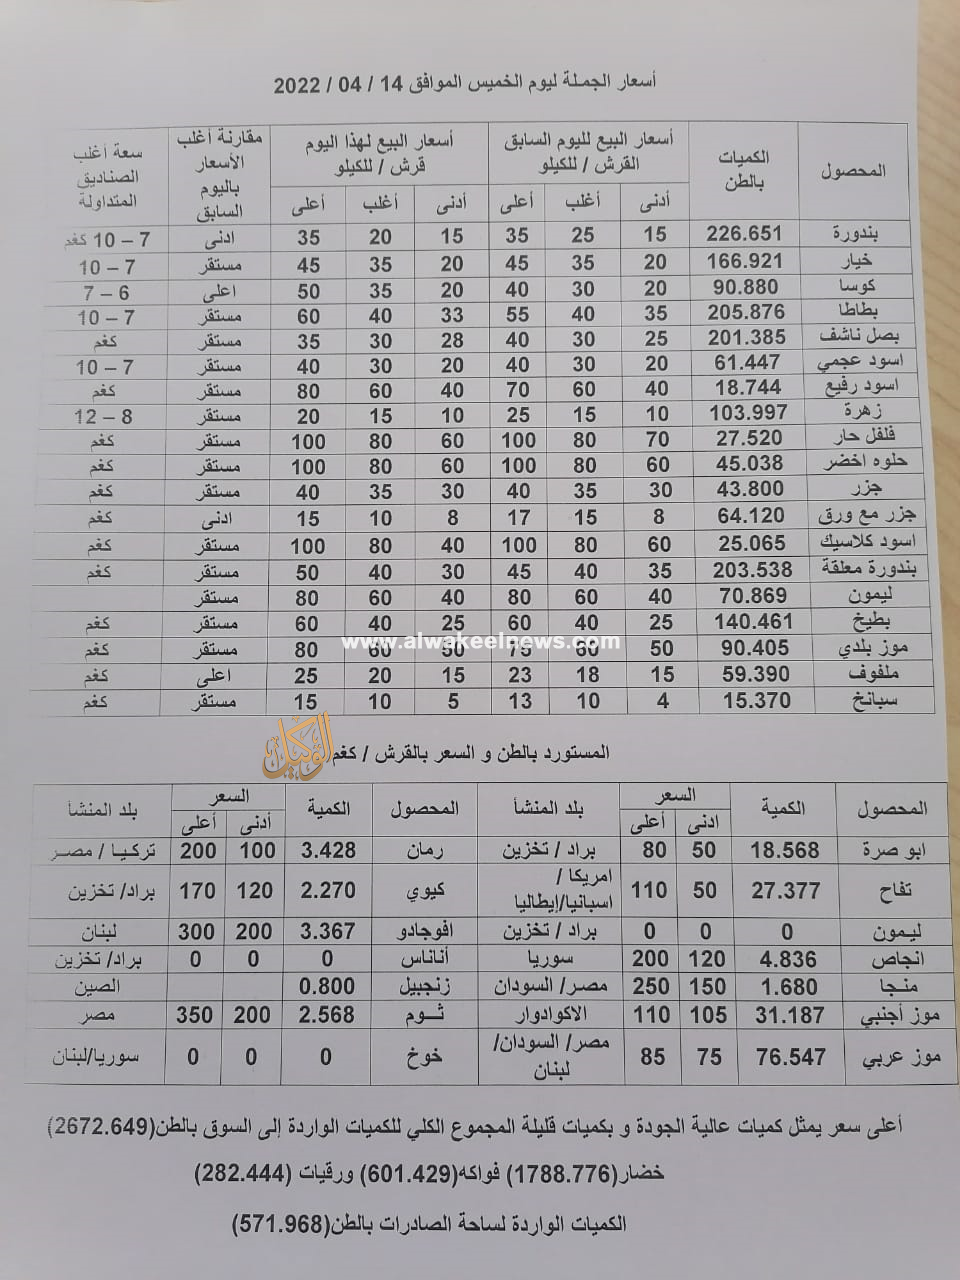 أسعار الجملة ليوم الخميس الموافق 14 / 04 / 2022
المحصول الكميات بالطن أسعار البيع لليوم السابق القرش / للكيلو أسعار البيع لهذا اليوم قرش / للكيلو مقارنة أغلب الأسعار باليوم السابق سعة أغلب الصناديق المتداولة
أدنى أغلب أعلى أدنى أغلب أعلى
بندورة 226.651 15 25 35 15 20 35 ادنى 7 – 10 كغم
خيار 166.921 20 35 45 20 35 45 مستقر 7 – 10
كوسا 90.880 20 30 40 20 35 50 اعلى 6 – 7
بطاطا 205.876 35 40 55 33 40 60 مستقر 7 – 10
بصل ناشف 201.385 25 30 40 28 30 35 مستقر كغم
اسود عجمي 61.447 20 30 40 20 30 40 مستقر 7 – 10
اسود رفيع 18.744 40 60 70 40 60 80 مستقر كغم
زهرة 103.997 10 15 25 10 15 20 مستقر 8 – 12
فلفل حار 27.520 70 80 100 60 80 100 مستقر كغم
حلوه اخضر 45.038 60 80 100 60 80 100 مستقر كغم
جزر 43.800 30 35 40 30 35 40 مستقر كغم
جزر مع ورق 64.120 8 15 17 8 10 15 ادنى كغم
اسود كلاسيك 25.065 60 80 100 40 80 100 مستقر كغم
بندورة معلقة 203.538 35 40 45 30 40 50 مستقر كغم
ليمون 70.869 40 60 80 40 60 80 مستقر
بطيخ 140.461 25 40 60 25 40 60 مستقر كغم
www.alwakeelnews.com
موز بلدي 90.405 50 60 75 50 60 80 مستقر كغم
ملفوف 59.390 15 18 23 15 20 25 اعلى كغم
سبانخ 15.370 4 10 13 5 10 15 مستقر كغم
الوكيل
المستورد بالطن و السعر بالقرش / كغم
المحصول الكمية السعر بلد المنشأ المحصول الكمية السعر بلد المنشأ
ادنى أعلى أدنى أعلى
ابو صرة 18.568 50 80 براد / تخزين رمان 3.428 100 200 تركيا / مصر
تفاح 27.377 50 110 امريكا / اسبانيا/إيطاليا كيوي 2.270 120 170 براد/ تخزين
ليمون 0 0 0 براد / تخزين افوجادو 3.367 200 300 لبنان
انجاص 4.836 120 200 سوريا أناناس 0 0 0 براد/ تخزين
منجا 1.680 150 250 مصر/ السودان زنجبيل 0.800 الصين
موز أجنبي 31.187 105 110 الاكوادوار ثــوم 2.568 200 350 مصر
موز عربي 76.547 75 85 مصر/ السودان/ لبنان خوخ 0 0 0 سوريا/لبنان
أعلى سعر يمثل كميات عالية الجودة و بكميات قليلة المجموع الكلي للكميات الواردة إلى السوق بالطن(2672.649)
خضار(1788.776) فواكه(601.429) ورقيات (282.444)
الكميات الواردة لساحة الصادرات بالطن(571.968)